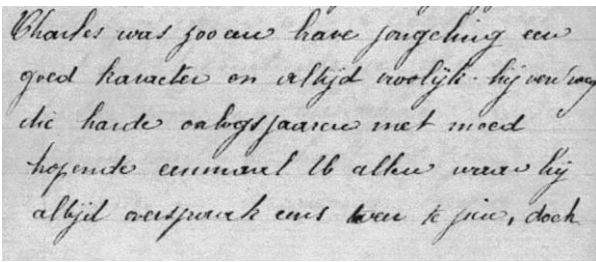 Charles was zoo een brave jongeling een
goed karacter en altijd vroolijk. hij verdroeg
die harde oologsjaaren met moed
hopende eenmaal U allen waar hij
altijd over sprak eens weer te zien, doch